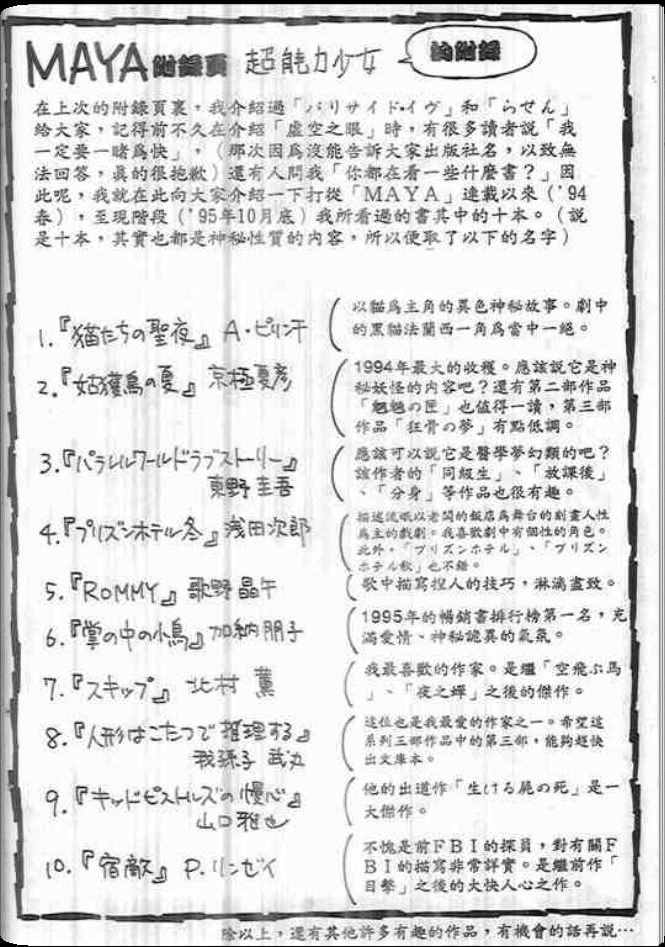 MAYA附錄頁 超能力少女 的附錄
在上次的附錄頁裏，我介紹過「パリサイド・イヴ」和「らせん」
給大家，記得前不久在介紹「虛空之眼」時，有很多讀者說「我
一定要一睹爲快」，（那次因爲沒能告訴大家出版社名，以致無
法回答，真的很抱歉）還有人問我「你都在看一些什麼書？」因
此呢，我就在此向大家介紹一下打從「MAYA」連載以來（'94
春），至現階段（'95年10月底）我所看過的書其中的十本。（說
是十本，其實也都是神秘性質的內容，所以便取了以下的名字）
1.『猫たちの聖夜』 A・ピリンチ
以貓爲主角的異色神秘故事。劇中
的黑貓法蘭西一角爲當中一絕。
2.『姑獲鳥の夏』 京極夏彦
1994年最大的收穫。應該說它是神
秘妖怪的內容吧？還有第二部作品
「魍魎の匣」也值得一讀，第三部
作品「狂骨の夢」有點低調。
3.『パラレルワールドラブストーリー』
東野圭吾
應該可以說它是醫學夢幻類的吧？
該作者的「同級生」、「放課後」
、「分身」等作品也很有趣。
4.『プリズンホテル冬』 浅田次郎
描述流氓以老闆的飯店爲舞台的刻畫人性
爲主的戲劇。我喜歡劇中有個性的角色。
此外，「プリズンホテル」、「プリズン
ホテル秋」也不錯。
5.『ROMMY』 歌野晶午
歌中描寫捏人的技巧，淋漓盡致。
6.『掌の中の小鳥』 加納朋子
1995年的暢銷書排行榜第一名，充
滿愛情、神秘詭異的氣氛。
7.『スキップ』 北村 薫
我最喜歡的作家。是繼「空飛ぶ馬
」、「夜之蟬」之後的傑作。
8.『人形はこたつで推理する』
我孫子 武丸
這位也是我最愛的作家之一。希望這
系列三部作品中的第三部，能夠趕快
出文庫本。
9.『キッドピストルズの慢心』
山口雅也
他的出道作「生ける屍の死」是一
大傑作。
10.『宿敵』 P.リンゼイ
不愧是前FBI的探員，對有關F
BI的描寫非常詳實。是繼前作「
目擊」之後的大快人心之作。
除以上，還有其他許多有趣的作品，有機會的話再說…